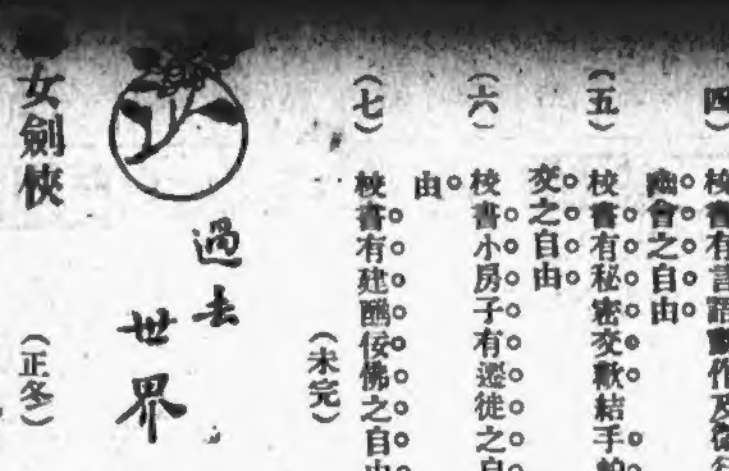 四） 校書有言語動作及
幽會之自由
（五） 校書有秘密交歡結手帕
交之自由
（六） 校書小房子有遷徙之自
由
（七） 校書有建醮佞佛之自由
（未完）
過去
世界
女劍俠 （正冬）